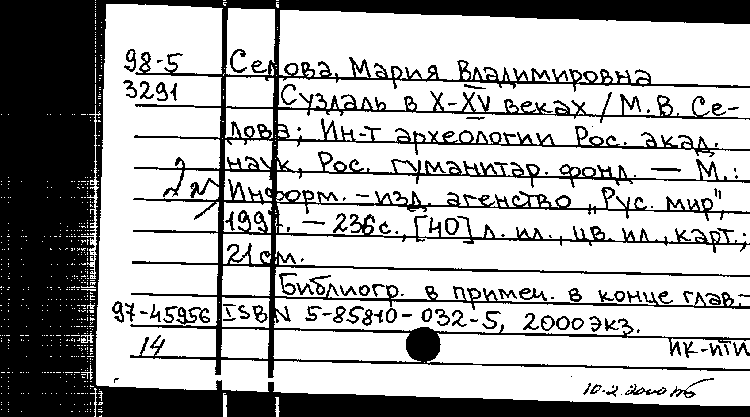 98-5 Седова, Мария Владимировна
3291 Суздаль в X-XV веках / М.В. Се-
дова; Ин-т археологии Рос. акад.
наук, Рос. гуманитар. фонд. — М.:
Информ.-изд. агенство „Рус. мир",
1997. — 236 с., [40] л. ил., цв. ил., карт.;
21 см.
Библиогр. в примеч. в конце глав.-
97-45956 ISBN 5-85810-032-5, 2000 экз.
14 ИК-ИТИ
10.2.2000